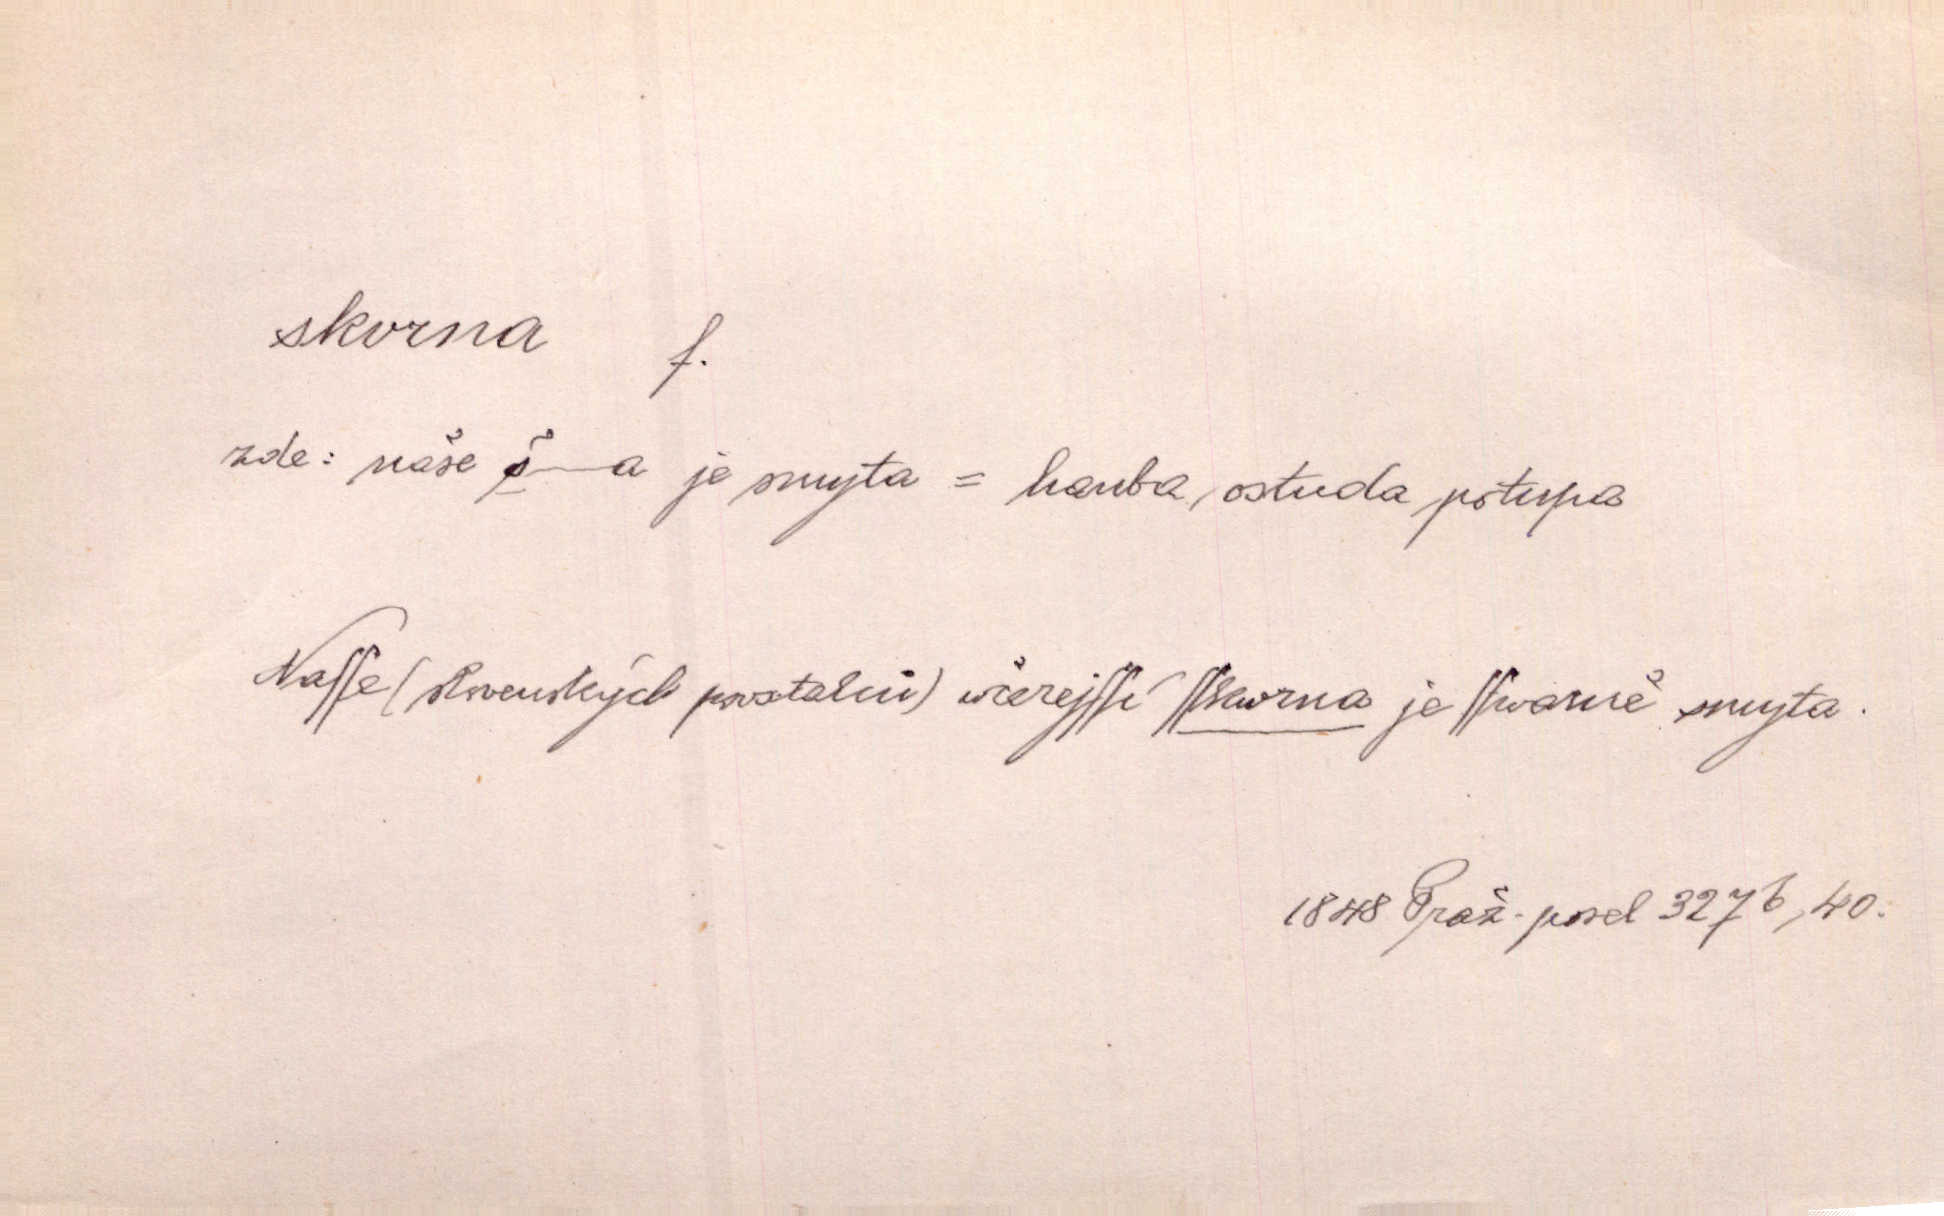 skvrna f.
zde: naše š—a je smyta = hanba, ostuda, potupa
Nasse (slovenských povstalců) včerejssí sskvrna je sswarně smyta.
1848 Praž. posel 327b, 40.